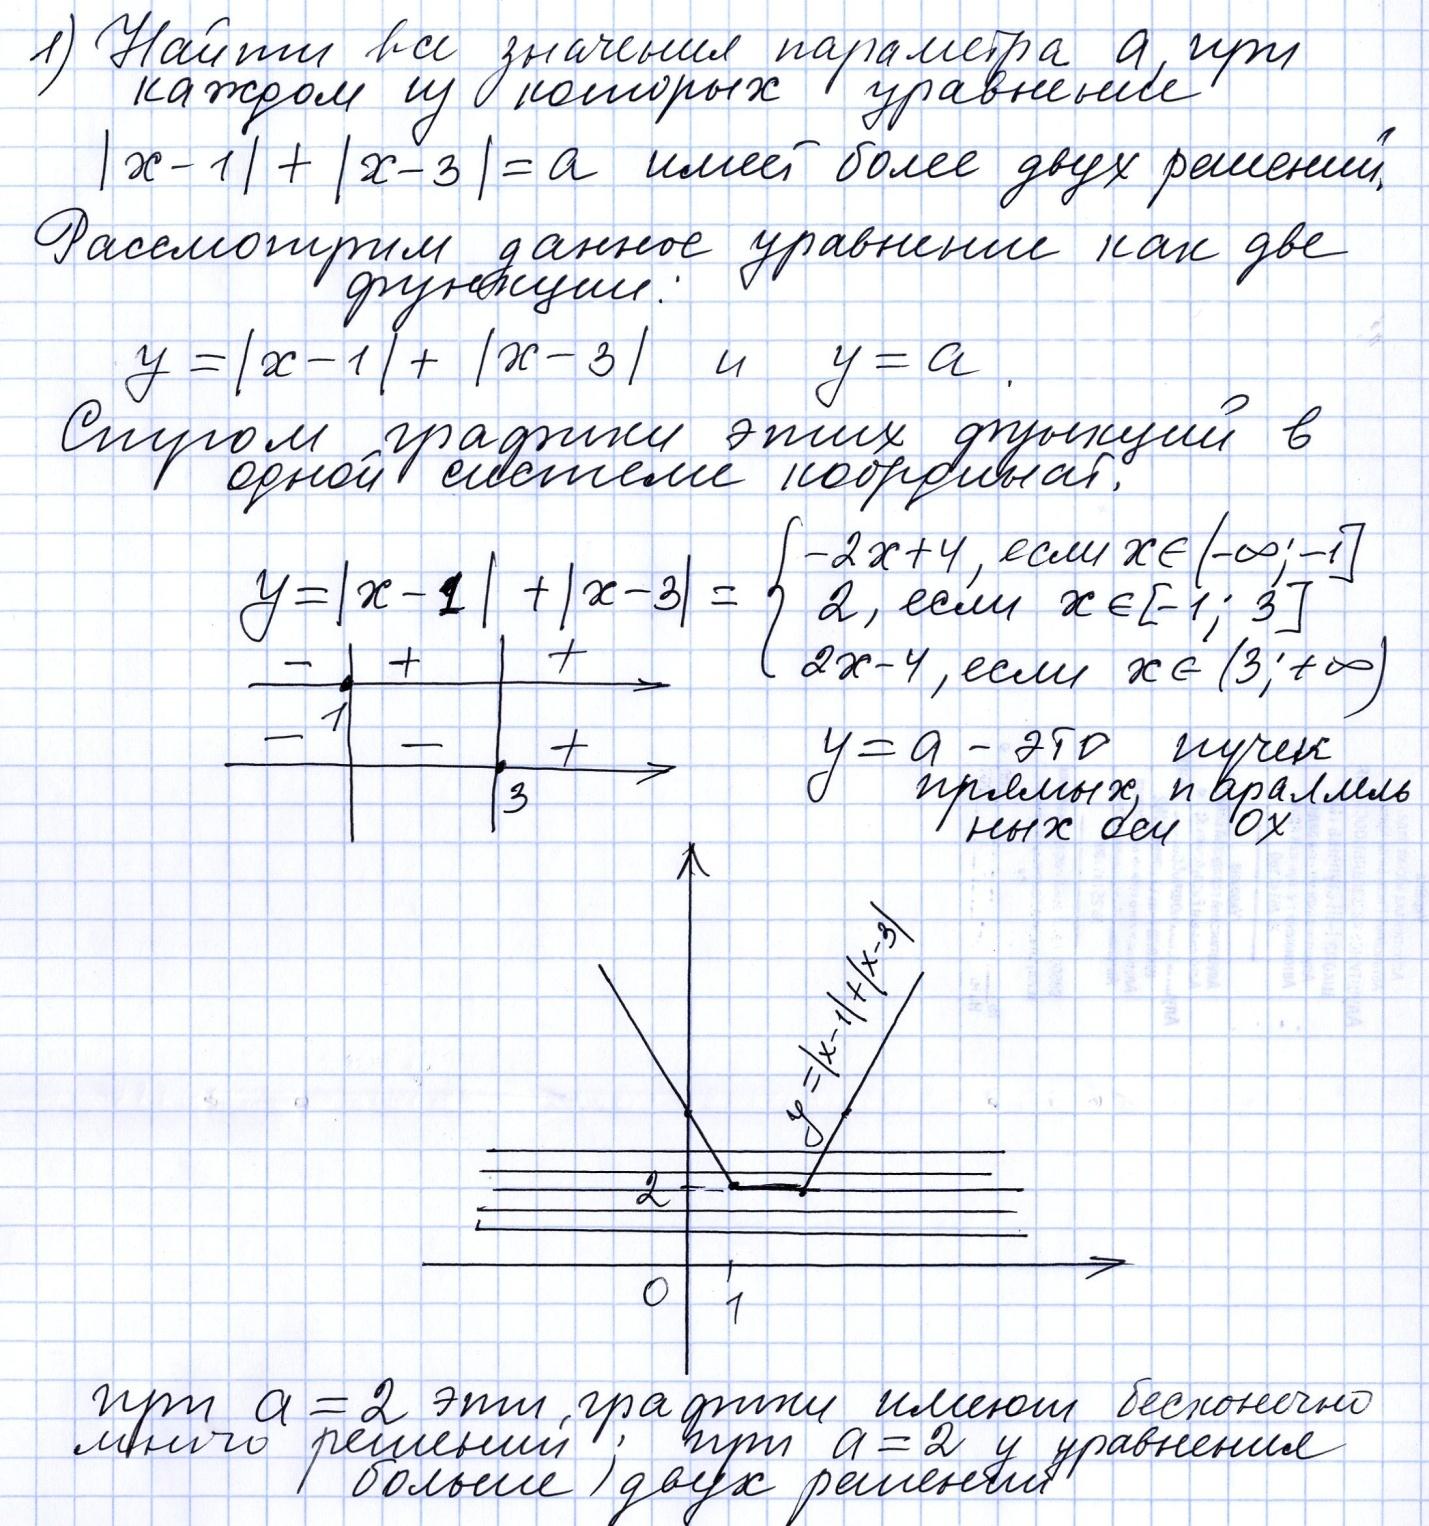 1) Найти все значения параметра а, при
каждом из которых уравнение
|x-1| + |x-3| = a имеет более двух решений.
Рассмотрим данное уравнение как две
функции:
y = |x-1| + |x-3| и y = a.
Строим графики этих функций в
одной системе координат.
y = |x-1| + |x-3| = { -2x+4, если x∈(-∞;-1]
2, если x∈[-1; 3]
2x-4, если x∈(3;+∞)
- + +
1
- - +
3
y = a - это пучек
прямых, параллель
ных оси OX
y = |x-1| + |x-3|
2
0
1
при a = 2 эти графики имеют бесконечно
много решений; при a = 2 у уравнения
больше двух решений